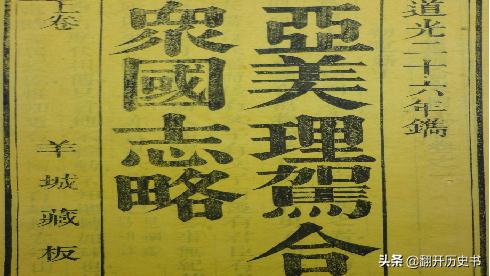 道光二十六年鐫
亞美理駕合
衆國志略
上卷
羊城藏板
头条 @翻开历史书